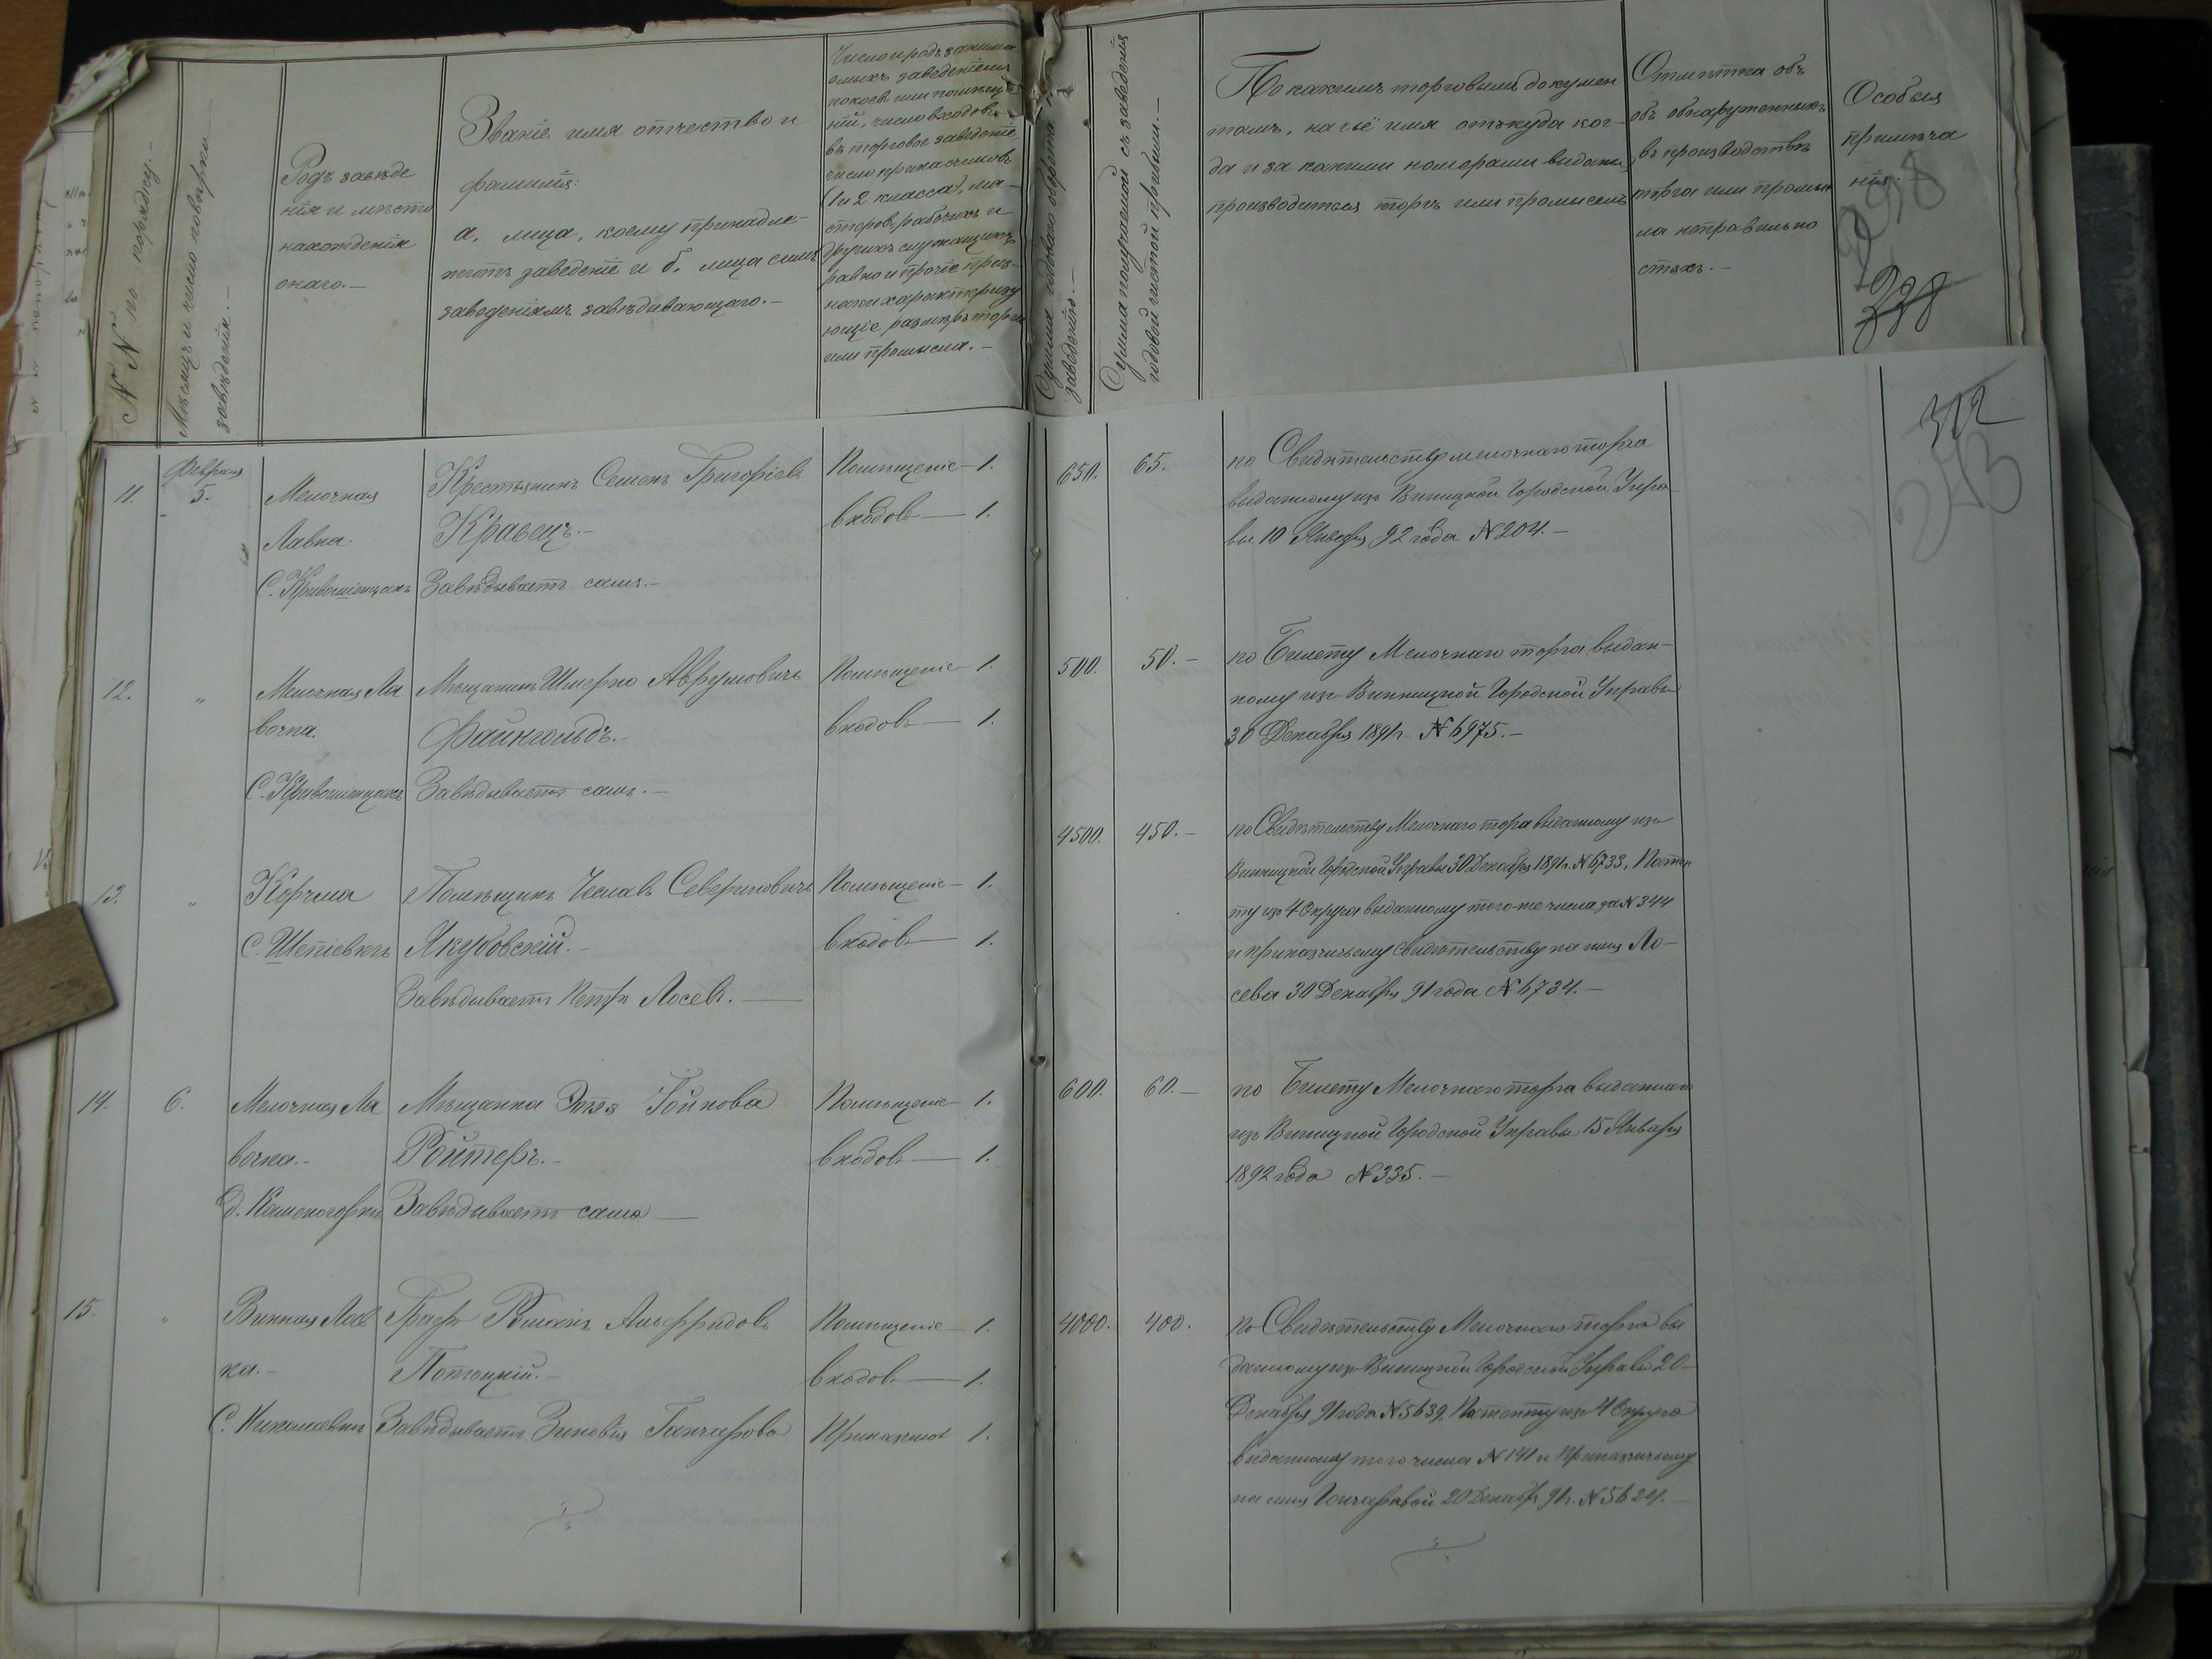 N N по порядку.-
Мѣсяцъ и число повѣрки
заведенія.-
Родъ заведе
нія и мѣсто
нахожденія
онаго.-
Званіе имя отчество и
фамилія:
а, лица, коему принадле-
житъ заведеніе и б. лица симъ
заведеніемъ завѣдывающаго.-
Число и родъ занима
емыхъ заведеніемъ
покоевъ или помѣще
ній, число входовъ
въ торговое заведеніе
число прикащиковъ
(1 и 2 класса), ма-
стеровъ, рабочихъ и
другихъ служащихъ,
равно и прочіе приз-
наки характеризу
ющіе размѣръ торга
или промысла.-
Сумма годоваго оборота
заведенія.-
Сумма получаемой съ заведенія
годовой чистой прибыли.-
По какимъ торговымъ докумен
тамъ, на чьё имя откуда ког-
да и за какими номерами выданы,
производится торгъ или промыселъ
Отмѣтка объ
обнаруженныхъ
въ производствѣ
торга или промыс
ла неправильно
стяхъ.-
Особыя
примѣча
нія.
338
312
243
11.
Февраля
5.
Мелочная
Лавка.
С. Кривошеинцахъ
Крестьянинъ Семенъ Григоріевъ
Кравецъ.-
Завѣдываетъ самъ.-
Помѣщеніе - 1.
входовъ - 1.
650.
65.
по Свидѣтельству мелочнаго торга
выданному изъ Виницкой Городской Упра
вы 10 Января 92 года N 204.-
12.
"
Мелочная Ла
вочка.
С. Кривошеинцахъ
Мѣщанинъ Шмерко Аврумовичъ
Файнгольдъ.-
Завѣдываетъ самъ.-
Помѣщеніе - 1.
входовъ - 1.
500.
50.-
по Билету Мелочнаго торга выдан-
ному изъ Винницкой Городской Управы
30 Декабря 1891 г. N 6975.-
13.
"
Корчма
С. Шепіевкъ
Помѣщикъ Чеславъ Севериновичъ
Якубовскій.-
Завѣдываетъ Петръ Лосевъ.-
Помѣщеніе - 1.
входовъ - 1.
4500.
450.-
по Свидѣтельству Мелочнаго торга выданному изъ
Винницкой Городской Управы 30 Декабря 1891 г. N 6733, Патен
ту изъ 4 Округа выданному того-же числа за N 344
и прикащичьему свидѣтельству на имя Ло-
сева 30 Декабря 91 года N 6734.-
14.
6.
Мелочная Ла
вочка.-
д. Каменогорки
Мѣщанка Этля Гойнова
Ройтеръ.-
Завѣдываетъ сама
Помѣщеніе - 1.
входовъ - 1.
600.
60.-
по Билету Мелочнаго торга выданнаго
изъ Виницкой Городской Управы 15 Января
1892 года N 335.-
15.
"
Винная Лав
ка.-
С. Николаевкѣ
Графъ Романъ Альфридовъ
Потоцкій.-
Завѣдываетъ Зиновія Ганчарова
Помѣщеніе - 1.
входовъ - 1.
Прикащиковъ 1.
4000.
400.
по Свидѣтельству Мелочнаго торга вы
данному изъ Виницкой Городской Управы 20-
Декабря 91 года N 5639, Патенту изъ 4 Округа
выданному того числа N 141 и Прикащичьему
на имя Гончаровой 20 Декабр. 91 г. N 5624.-